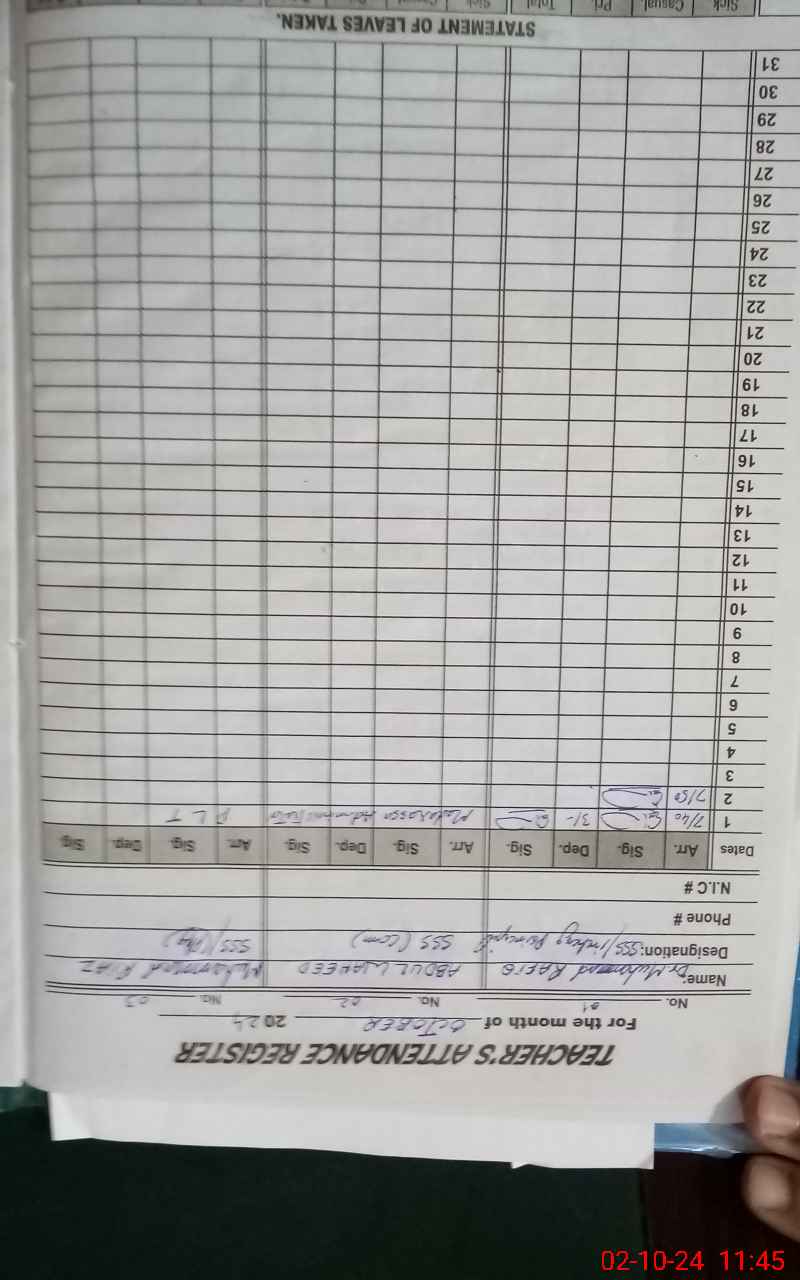 TEACHER'S ATTENDANCE REGISTER
For the month of OCTOBER 2024
No. 01 No. 02 No. 03
Name: Dr. Muhammad RAFIQ ABDUL WAHEED Muhammad RIAZ
Designation: SSS/Incharge Principal SSS (com) SSS (Phy)
Phone #
N.I.C #
Dates Arr. Sig. Dep. Sig. Arr. Sig. Dep. Sig. Arr. Sig. Dep. Sig.
1 7/40 3/-
2 7/50
3
4
5
6
7
8
9
10
11
12
13
14
15
16
17
18
19
20
21
22
23
24
25
26
27
28
29
30
31
STATEMENT OF LEAVES TAKEN.
Sick Casual. Pri. Total
02-10-24 11:45